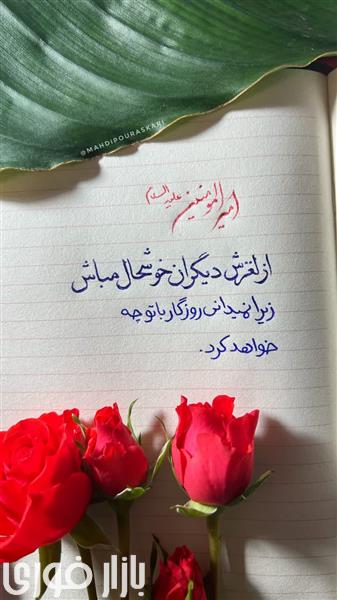 @MAHDIPOURASKARI
امیرالمومنین علیه السلام
از لغزش دیگران خوشحال مباش
زیرا نمیدانی روزگار با تو چه
خواهد کرد.
بازار فوری